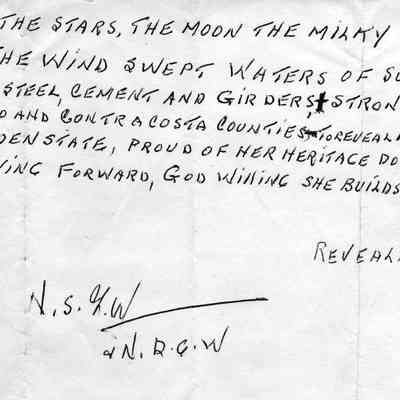 THE STARS, THE MOON THE MILKY
THE WIND SWEPT WATERS OF SU
STEEL, CEMENT AND GIRDERS STRON
D AND CONTRA COSTA COUNTIES TO REVEAL
DEN STATE, PROUD OF HER HERITAGE DO
ING FORWARD, GOD WILLING SHE BUILDS
REVEAL
N. S. G. W
& N. D. G. W